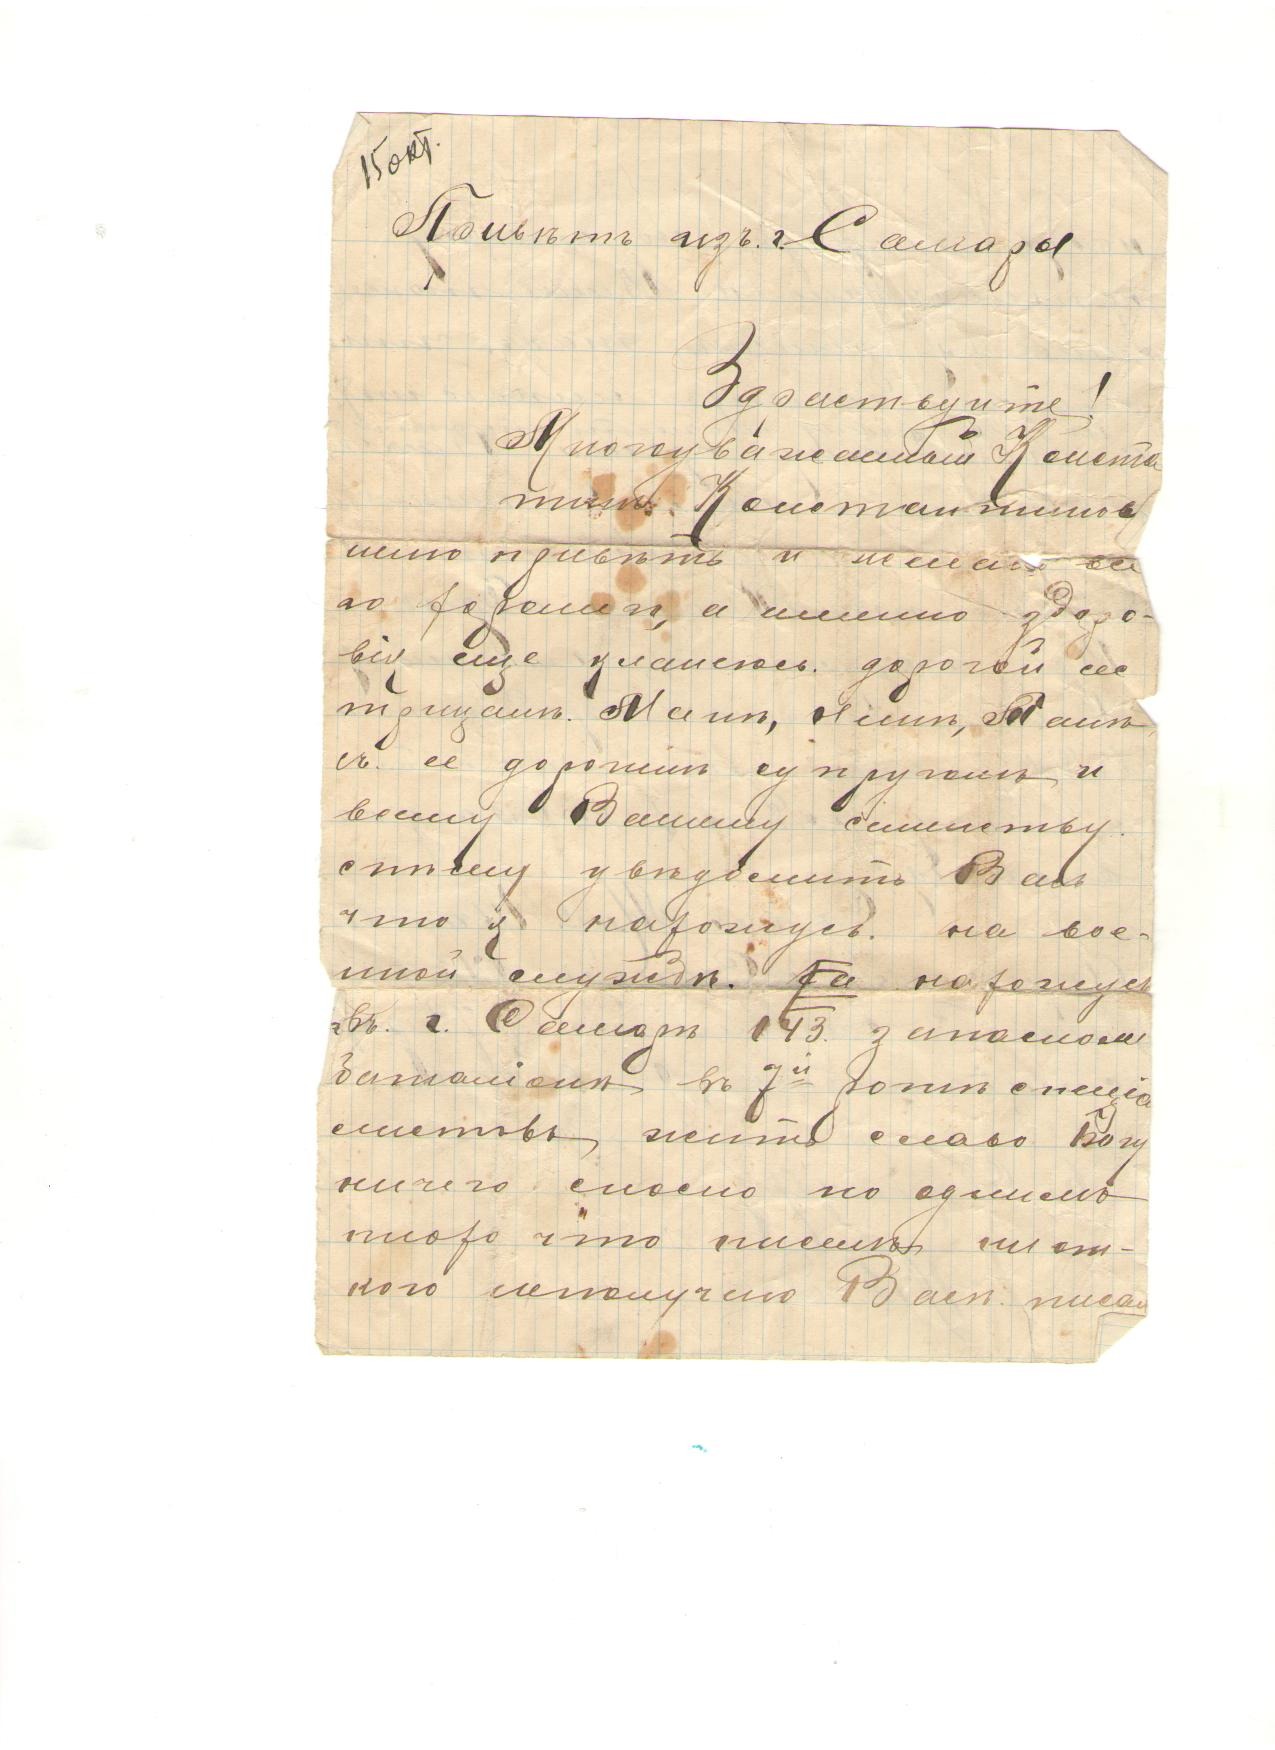 15 окт.
Привѣтъ изъ г. Самары
Здраствуите!
Многоуважаемый Конста
тинъ Константинов
шлю привѣтъ и желаю все
го хорошаго, а именно здоро-
вія еще кланеюсь дорогой се
трицамъ. Манѣ, Янѣ, Танѣ,
съ ее дорогимъ супругамъ и
всему Вашему симейству.
спешу увѣдомить Васъ
что я нахожусь. на вое-
нной службѣ. Га нахожусь
въ. г. Самарѣ 143. запасном
баталіонѣ въ 7й ротѣ спеціа
листовъ, жить славо Богу
ничего сносно но однимъ
плохо что писемъ ни от-
кого неполучаю Васъ. писал